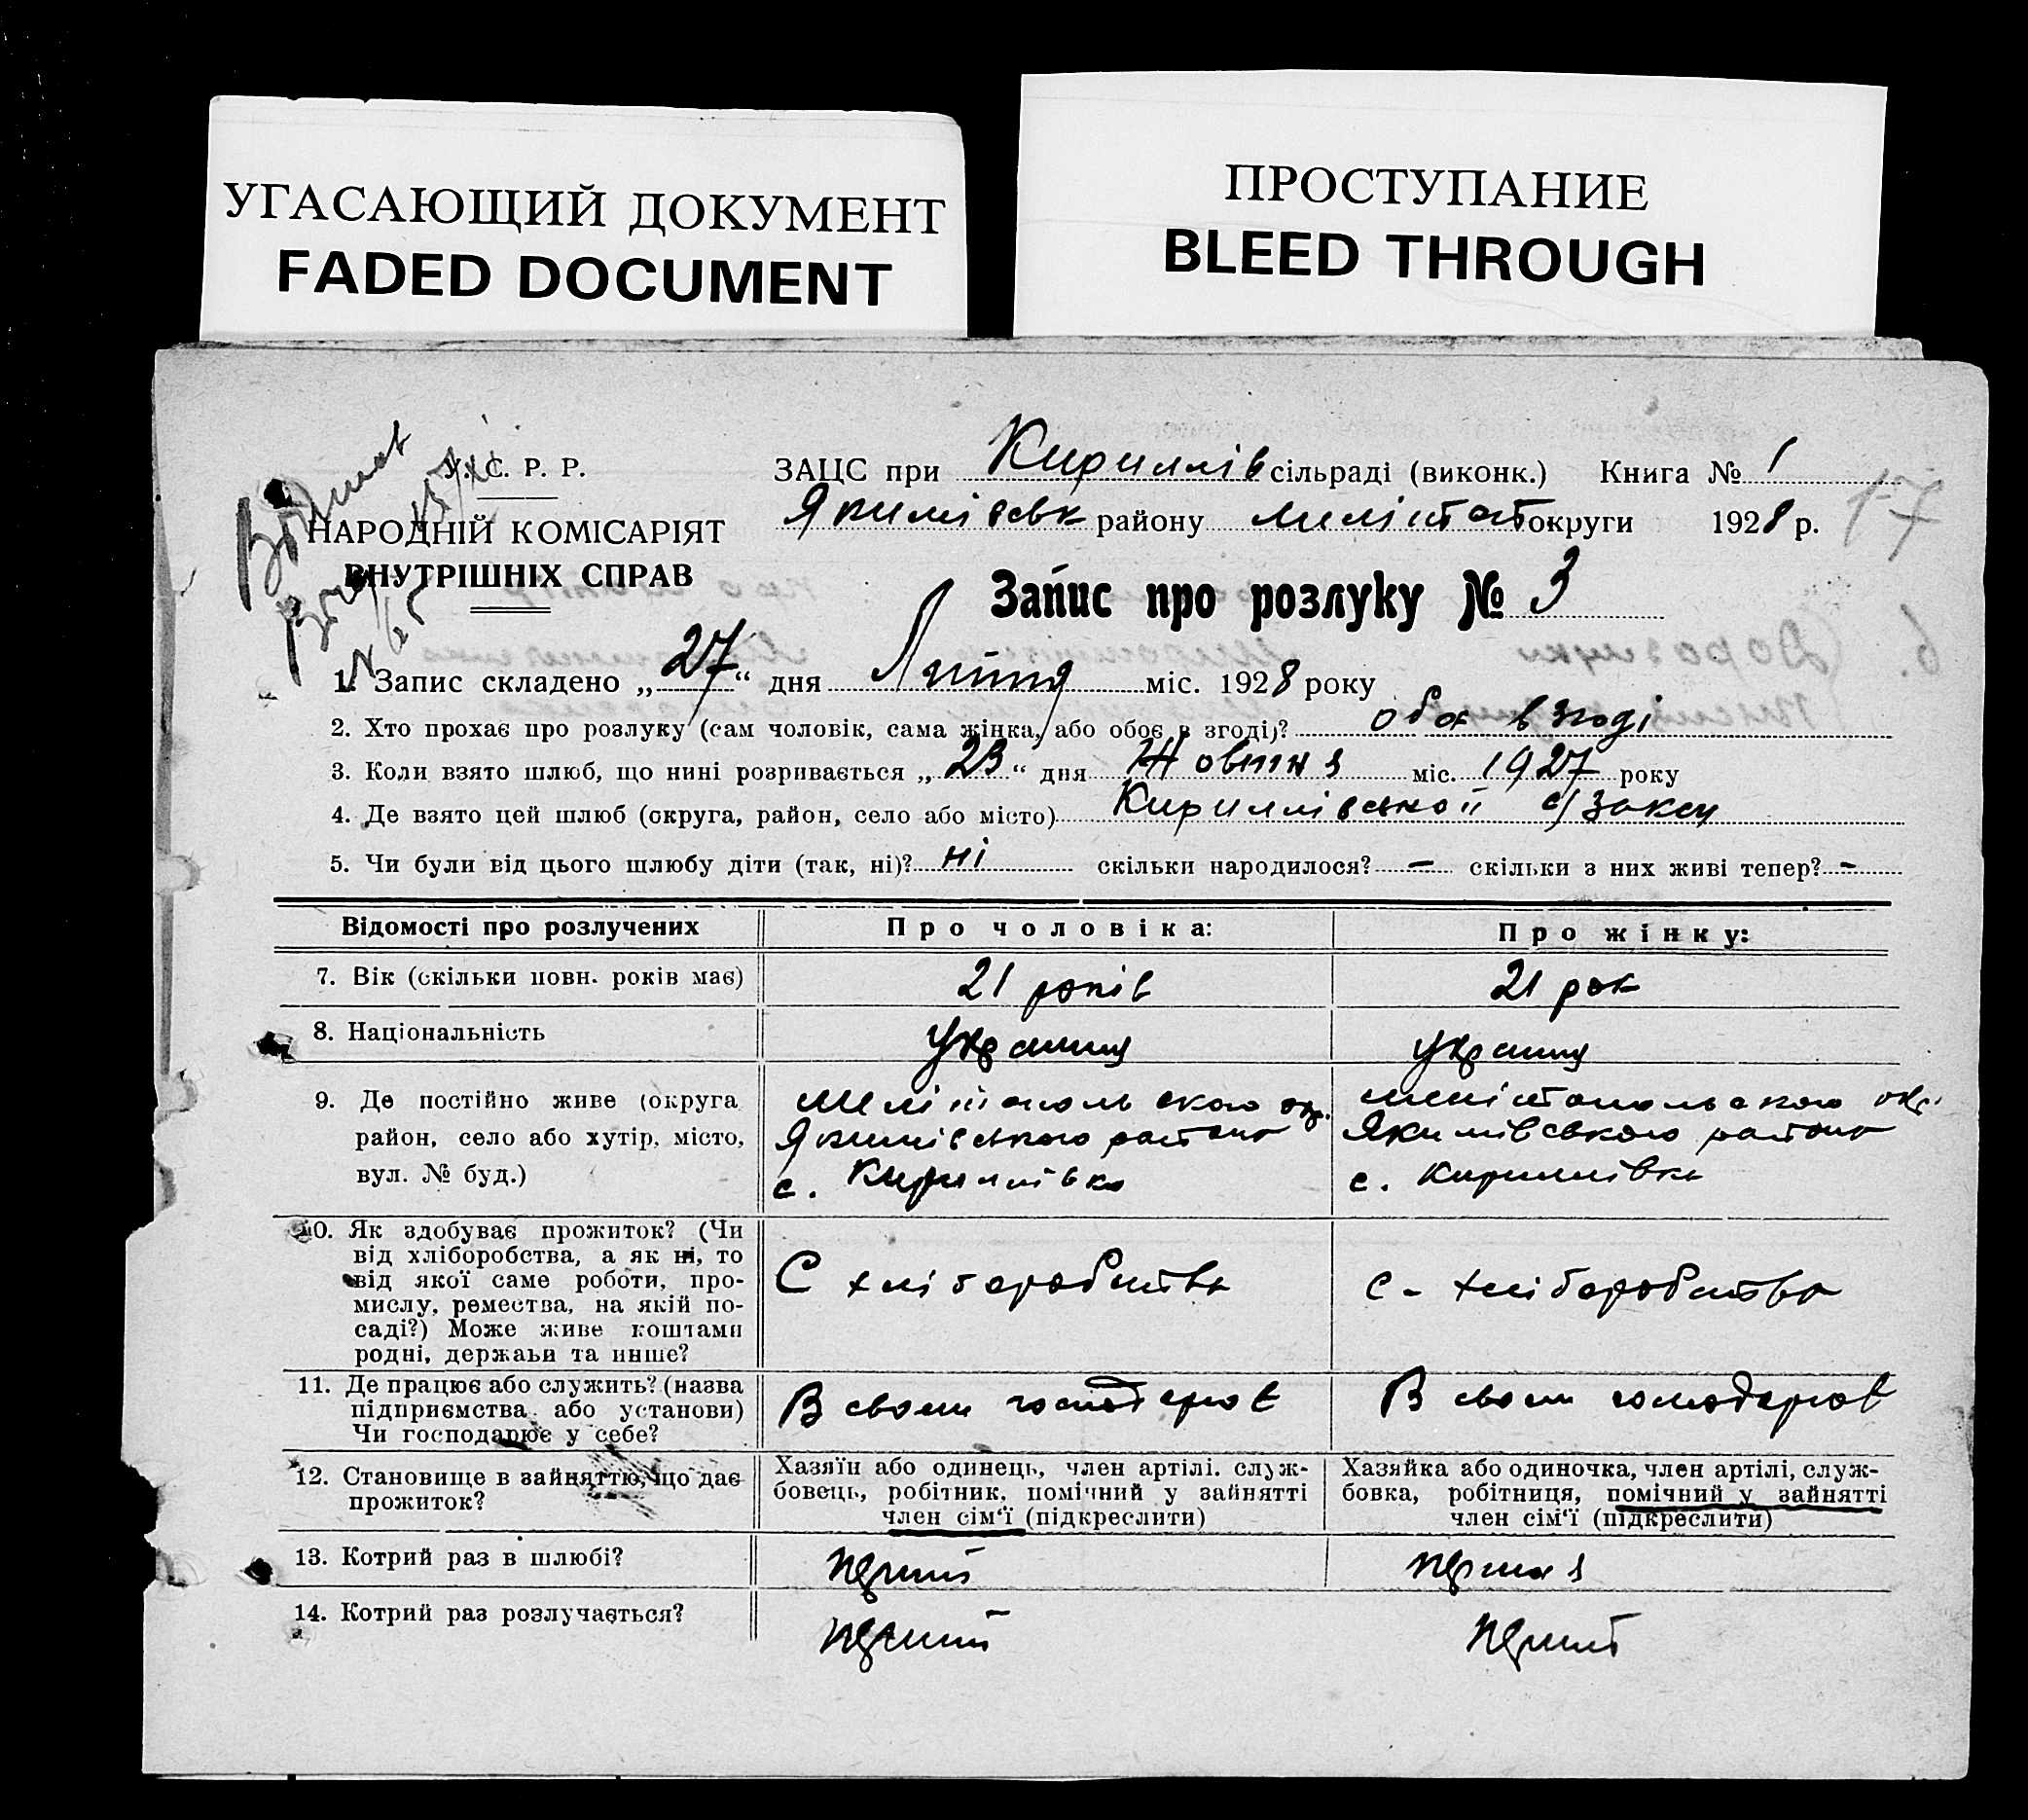 УГАСАЮЩИЙ ДОКУМЕНТ
FADED DOCUMENT
ПРОСТУПАНИЕ
BLEED THROUGH
У. С. Р. Р.
НАРОДНІЙ КОМІСАРІЯТ
ВНУТРІШНІХ СПРАВ
ЗАЦС при Кириллів сільраді (виконк.) Книга № 1
Якимівськ району Мелітоп округи 1928 р.
17
Запис про розлуку № 3
1. Запис складено „27“ дня Липня міс. 1928 року
2. Хто прохає про розлуку (сам чоловік, сама жінка, або обоє в згоді)? обоє в згоді
3. Коли взято шлюб, що нині розривається „23“ дня Жовтня міс. 1927 року
4. Де взято цей шлюб (округа, район, село або місто) Кириллівської с/
5. Чи були від цього шлюбу діти (так, ні)? ні скільки народилося? — скільки з них живі тепер? -
Відомості про розлучених
Про чоловіка:
Про жінку:
7. Вік (скільки повн. років має)
21 років
21 рок
8. Національність
9. Де постійно живе (округа
район, село або хутір, місто,
вул. № буд.)
Мелітопольского окр.
Якимівського
с. Кириллівка
Мелітопольского окр.
Якимівського
с. Кириллівка
10. Як здобуває прожиток? (Чи
від хліборобства, а як ні, то
від якої саме роботи, про-
мислу, ремества, на якій по-
саді?) Може живе коштами
родні, держави та инше?
С хліборобства
с - хліборобства
11. Де працює або служить? (назва
підприємства або установи)
Чи господарює у себе?
В своем
В своем
12. Становище в зайняттю, що дає
прожиток?
Хазяїн або одинець, член артілі. служ-
бовець, робітник, помічний у зайнятті
член сім'ї (підкреслити)
Хазяйка або одиночка, член артілі, служ-
бовка, робітниця, помічний у зайнятті
член сім'ї (підкреслити)
13. Котрий раз в шлюбі?
перший
14. Котрий раз розлучається?
перший
перший